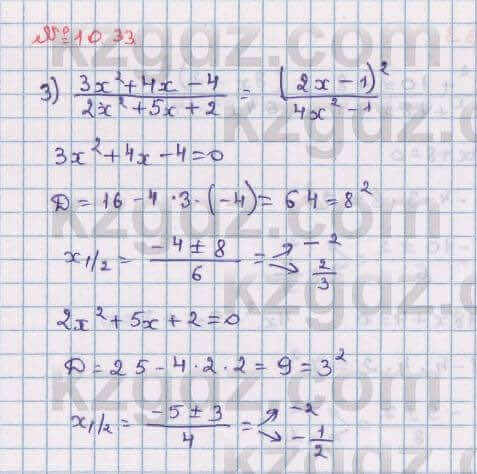 №10.33
3) (3x²+4x-4)/(2x²+5x+2) = (2x-1)²/(4x²-1)
3x²+4x-4=0
D=16-4·3·(-4)=64=8²
x₁/₂ = (-4±8)/6 = -2; 2/3
2x²+5x+2=0
D=25-4·2·2=9=3²
x₁/₂ = (-5±3)/4 = -2; -1/2
kzgdz.com